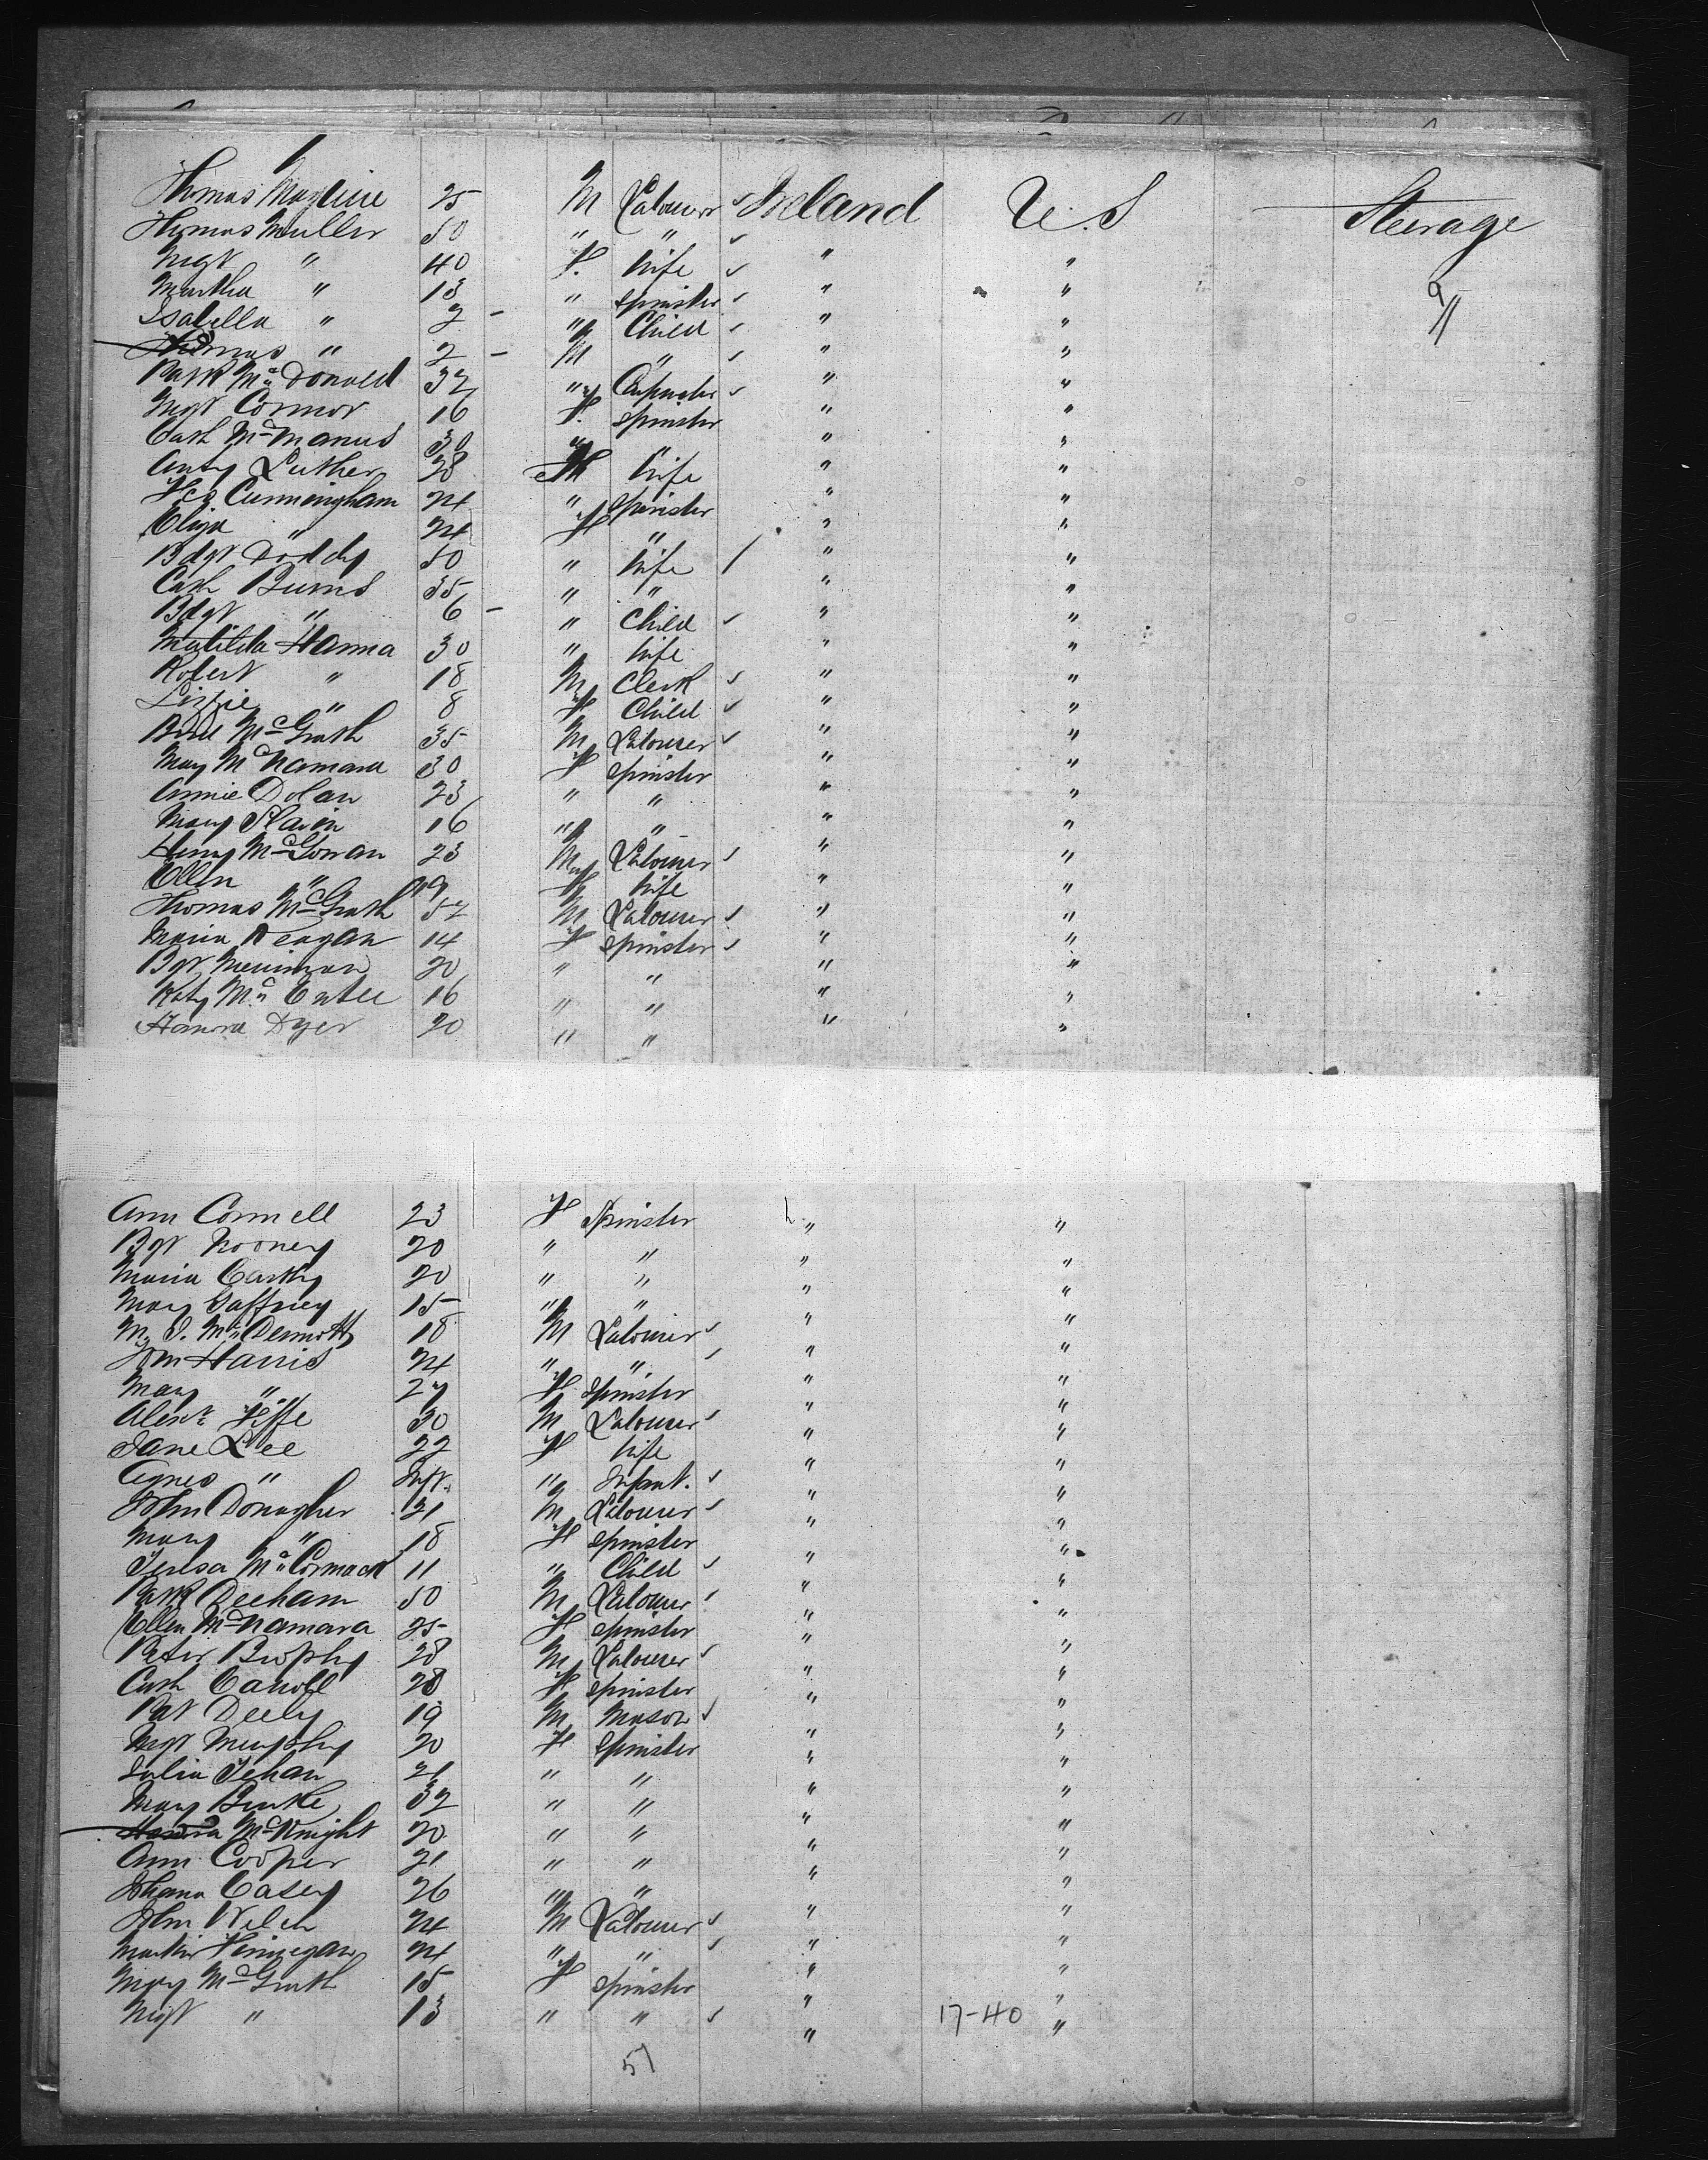 Thomas Maguire 25 M Labourer ✓ Ireland U.S Steerage
Thomas Muller 50 " " ✓ " "
Mgt " 40 F. Wife ✓ " "
Martha " 13 " Spinster ✓ " "
Isabella " 2 - " Child ✓ " "
Thomas " 2 - M " ✓ " "
Patk McDonald 32 " Carpenter ✓ " "
Mgt Connor 16 F. Spinster " "
Cath McManus 30 " " " "
Anty Luther 28 Wife " "
Cunningham 24 " Spinster " "
Eliza " 24 F " " "
Bdgt Doddy 50 " Wife / " "
Cath Burns 35 " " " "
Bdgt " 6 - " Child ✓ " "
Matilda Hanna 30 " Wife " "
Robert " 18 M Clerk ✓ " "
Lizzie " 8 F Child ✓ " "
McGrath 35 M Labourer ✓ " "
Mary McNamara 30 F Spinster " "
Annie Dolan 23 " " " "
Mary Slavin 16 " " " "
Henry McGowan 23 M Labourer ✓ " "
Ellen " 19 F Wife " "
Thomas McGrath 52 M Labourer ✓ " "
Maria Keegan 14 F Spinster ✓ " "
Bgt Merriman 20 " " " "
Katy McEntee 16 " " " "
Hanora Dyer 20 " " " "
Ann Connell 23 F Spinster " "
Bgt Nooney 20 " " " "
Maria Carthy 20 " " " "
Mary Gaffney 15 " " " "
McDermott 18 M Labourer ✓ " "
Harris 24 " " ✓ " "
Mary " 27 F Spinster " "
Alexr Fiffe 30 M Labourer ✓ " "
Jane Lee 22 F Wife " "
Agnes " Inft. " Infant. ✓ " "
John Donagher 21 M Labourer ✓ " "
Mary " 18 F Spinster " "
Teresa McCormack 11 " Child ✓ " "
Patk Deeham 50 M Labourer ✓ " "
Ellen McNamara 25 F Spinster " "
Peter Brophy 28 M Labourer ✓ " "
Cath Caroll 28 F Spinster " "
Pat Deely 19 M Mason ✓ " "
Mgt Murphy 20 F Spinster " "
Julia Tehan 21 " " " "
Mary Burke 32 " " " "
Hanora McKnight 20 " " " "
Ann Cooper 21 " " " "
Johana Casey 26 " " " "
John Welch 24 M Labourer ✓ " "
Martin Finnegan 24 " " ✓ " "
Mary McGrath 15 F Spinster " "
Mgt " 13 " " ✓ " 17-40 "
57